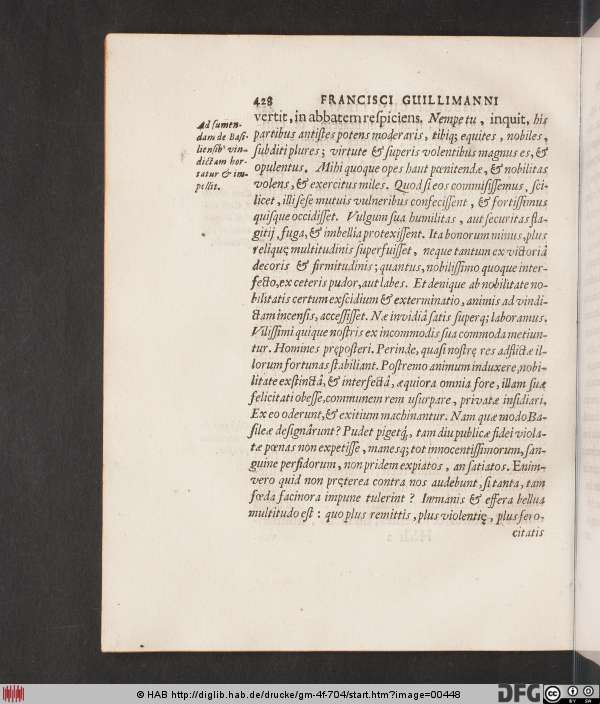 428 FRANCISCI GUILLIMANNI
Ad sumen-
dam de Basi-
liensib' vin-
dictam hor-
tatur & im-
pellit.
vertit, in abbatem respiciens. Nempe tu, inquit, his
partibus antistes potens moderaris, tibiq; equites, nobiles,
subditi plures; virtute & superis volentibus magnus es, &
opulentus. Mihi quoque opes haut pœnitendæ, & nobilitas
volens, & exercitus miles. Quod si eos commisissemus, sci-
licet, illi sese mutuis vulneribus confecissent, & fortissimus
quisque occidisset. Vulgum sua humilitas, aut securitas fla-
gitij, fuga, & imbellia protexissent. Ita bonorum minus, plus
reliquę multitudinis superfuisset, neque tantum ex victoriâ
decoris & firmitudinis; quantus, nobilissimo quoque inter-
fecto, ex ceteris pudor, aut labes. Et denique ab nobilitate no-
bilitatis certum exscidium & exterminatio, animis ad vindi-
ctam incensis, accessisset. Næ invidiâ satis superq; laboramus.
Vilissimi quique nostris ex incommodis sua commoda metiun-
tur. Homines pręposteri. Perinde, quasi nostrę res adflictæ il-
lorum fortunas stabiliant. Postremo animum induxere, nobi-
litate exstinctâ, & interfectâ, æquiora omnia fore, illam suæ
felicitati obesse, communem rem usurpare, privatæ insidiari.
Ex eo oderunt, & exitium machinantur. Nam quæ modo Ba-
sileæ designârunt? Pudet pigetq́, tam diu publicæ fidei viola-
tæ pœnas non expetisse, manesq; tot innocentissimorum, san-
guine perfidorum, non pridem expiatos, an satiatos. Enim-
vero quid non pręterea contra nos audebunt, si tanta, tam
fœda facinora impune tulerint? Inmanis & effera bellua
multitudo est: quo plus remittis, plus violentię, plus fero-
citatis
© HAB http://diglib.hab.de/drucke/gm-4f-704/start.htm?image=00448
DFG
cc
BY SA